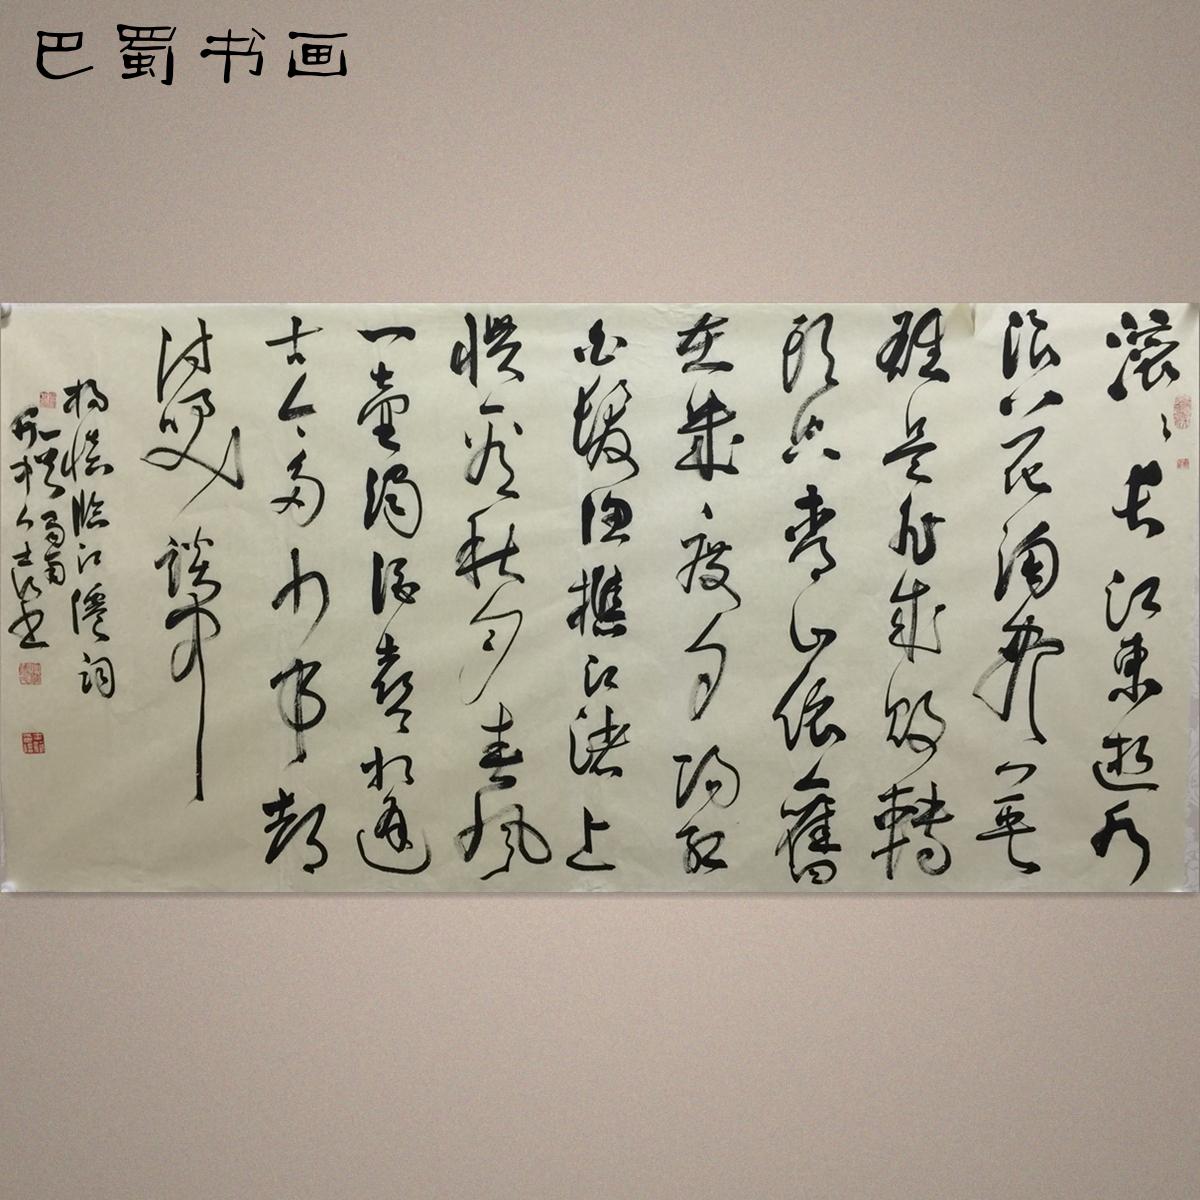 巴蜀书画
滚〻长江東逝水
浪花淘尽英
雄是非成敗轉
頭空青山依舊
在幾度夕阳红
白髮渔樵江渚上
惯看秋月春風
一壶濁酒喜相逢
古今多少事都
付笑談中
杨慎临江僊词
蜀南